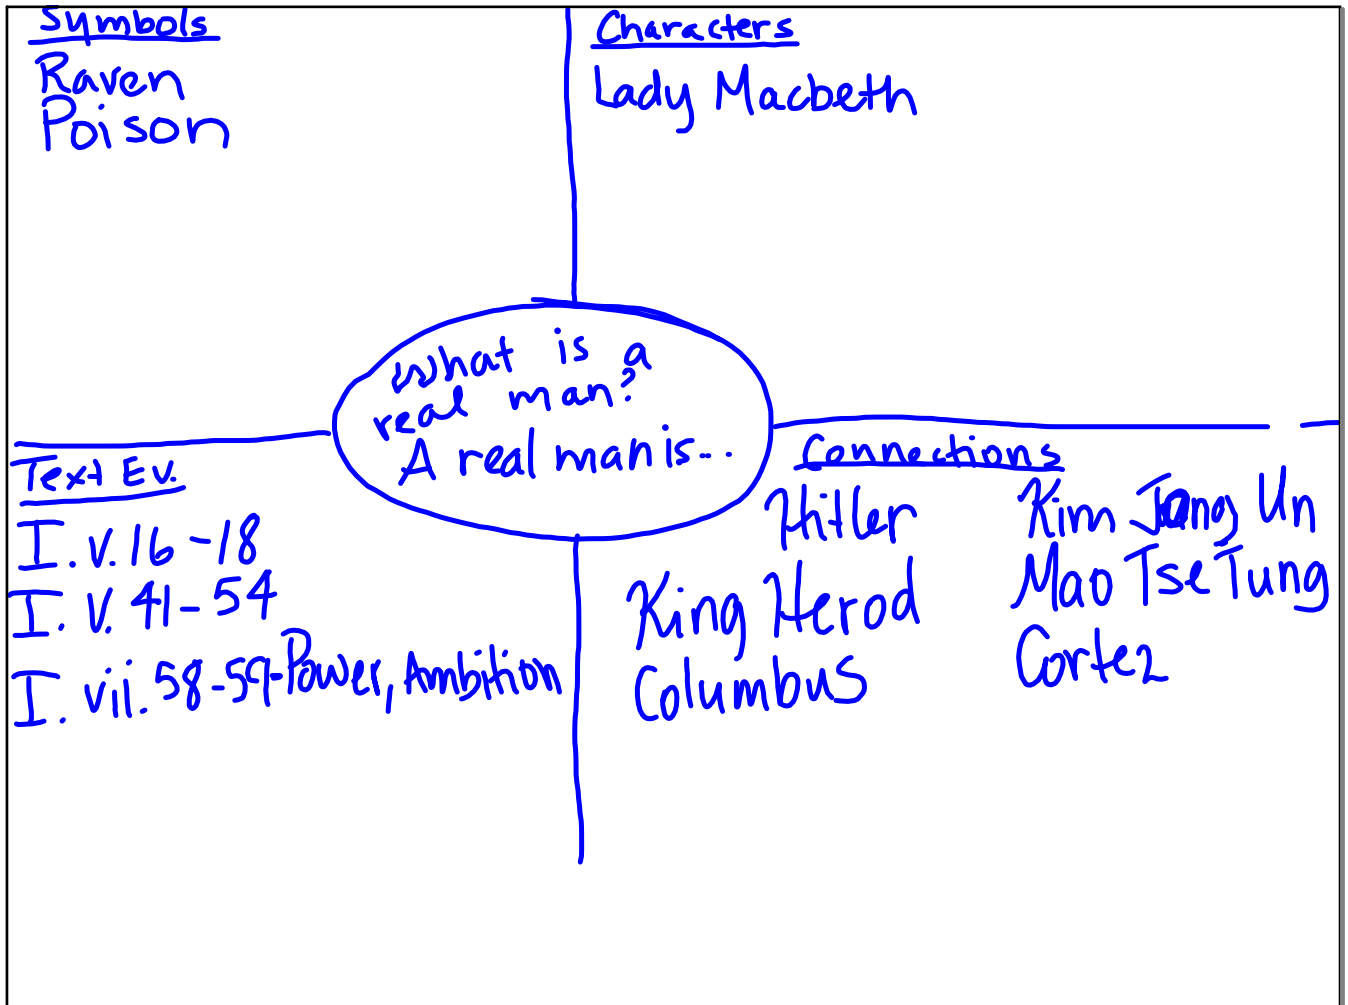 Symbols
Raven
Poison
Characters
Lady Macbeth
What is a
real man?
A real man is...
Text Ev.
I. v. 16-18
I. V. 41-54
I. vii. 58-59-Power, Ambition
Connections
Hitler
King Herod
Columbus
Kim Jong Un
Mao Tse Tung
Cortez